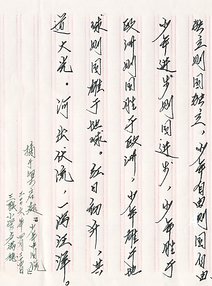 独立则国独立，少年自由则国自由
少年进步则国进步，少年胜于
欧洲则国胜于欧洲，少年雄于地
球则国雄于地球。红日初升，其
道大光。河出伏流，一泻汪洋。
摘于梁启超《少年中国说》